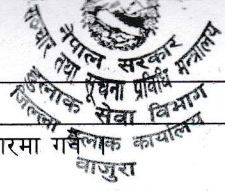 नेपाल सरकार
सञ्चार तथा सूचना प्रविधि मन्त्रालय
हुलाक सेवा विभाग
जिल्ला हुलाक कार्यालय
बाजुरा
ारमा गर्ने